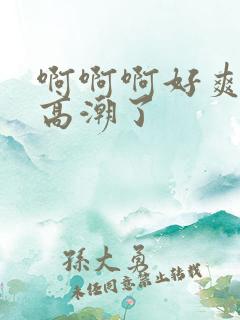 啊啊啊好爽
高潮了
孫大勇
未经同意禁止转载